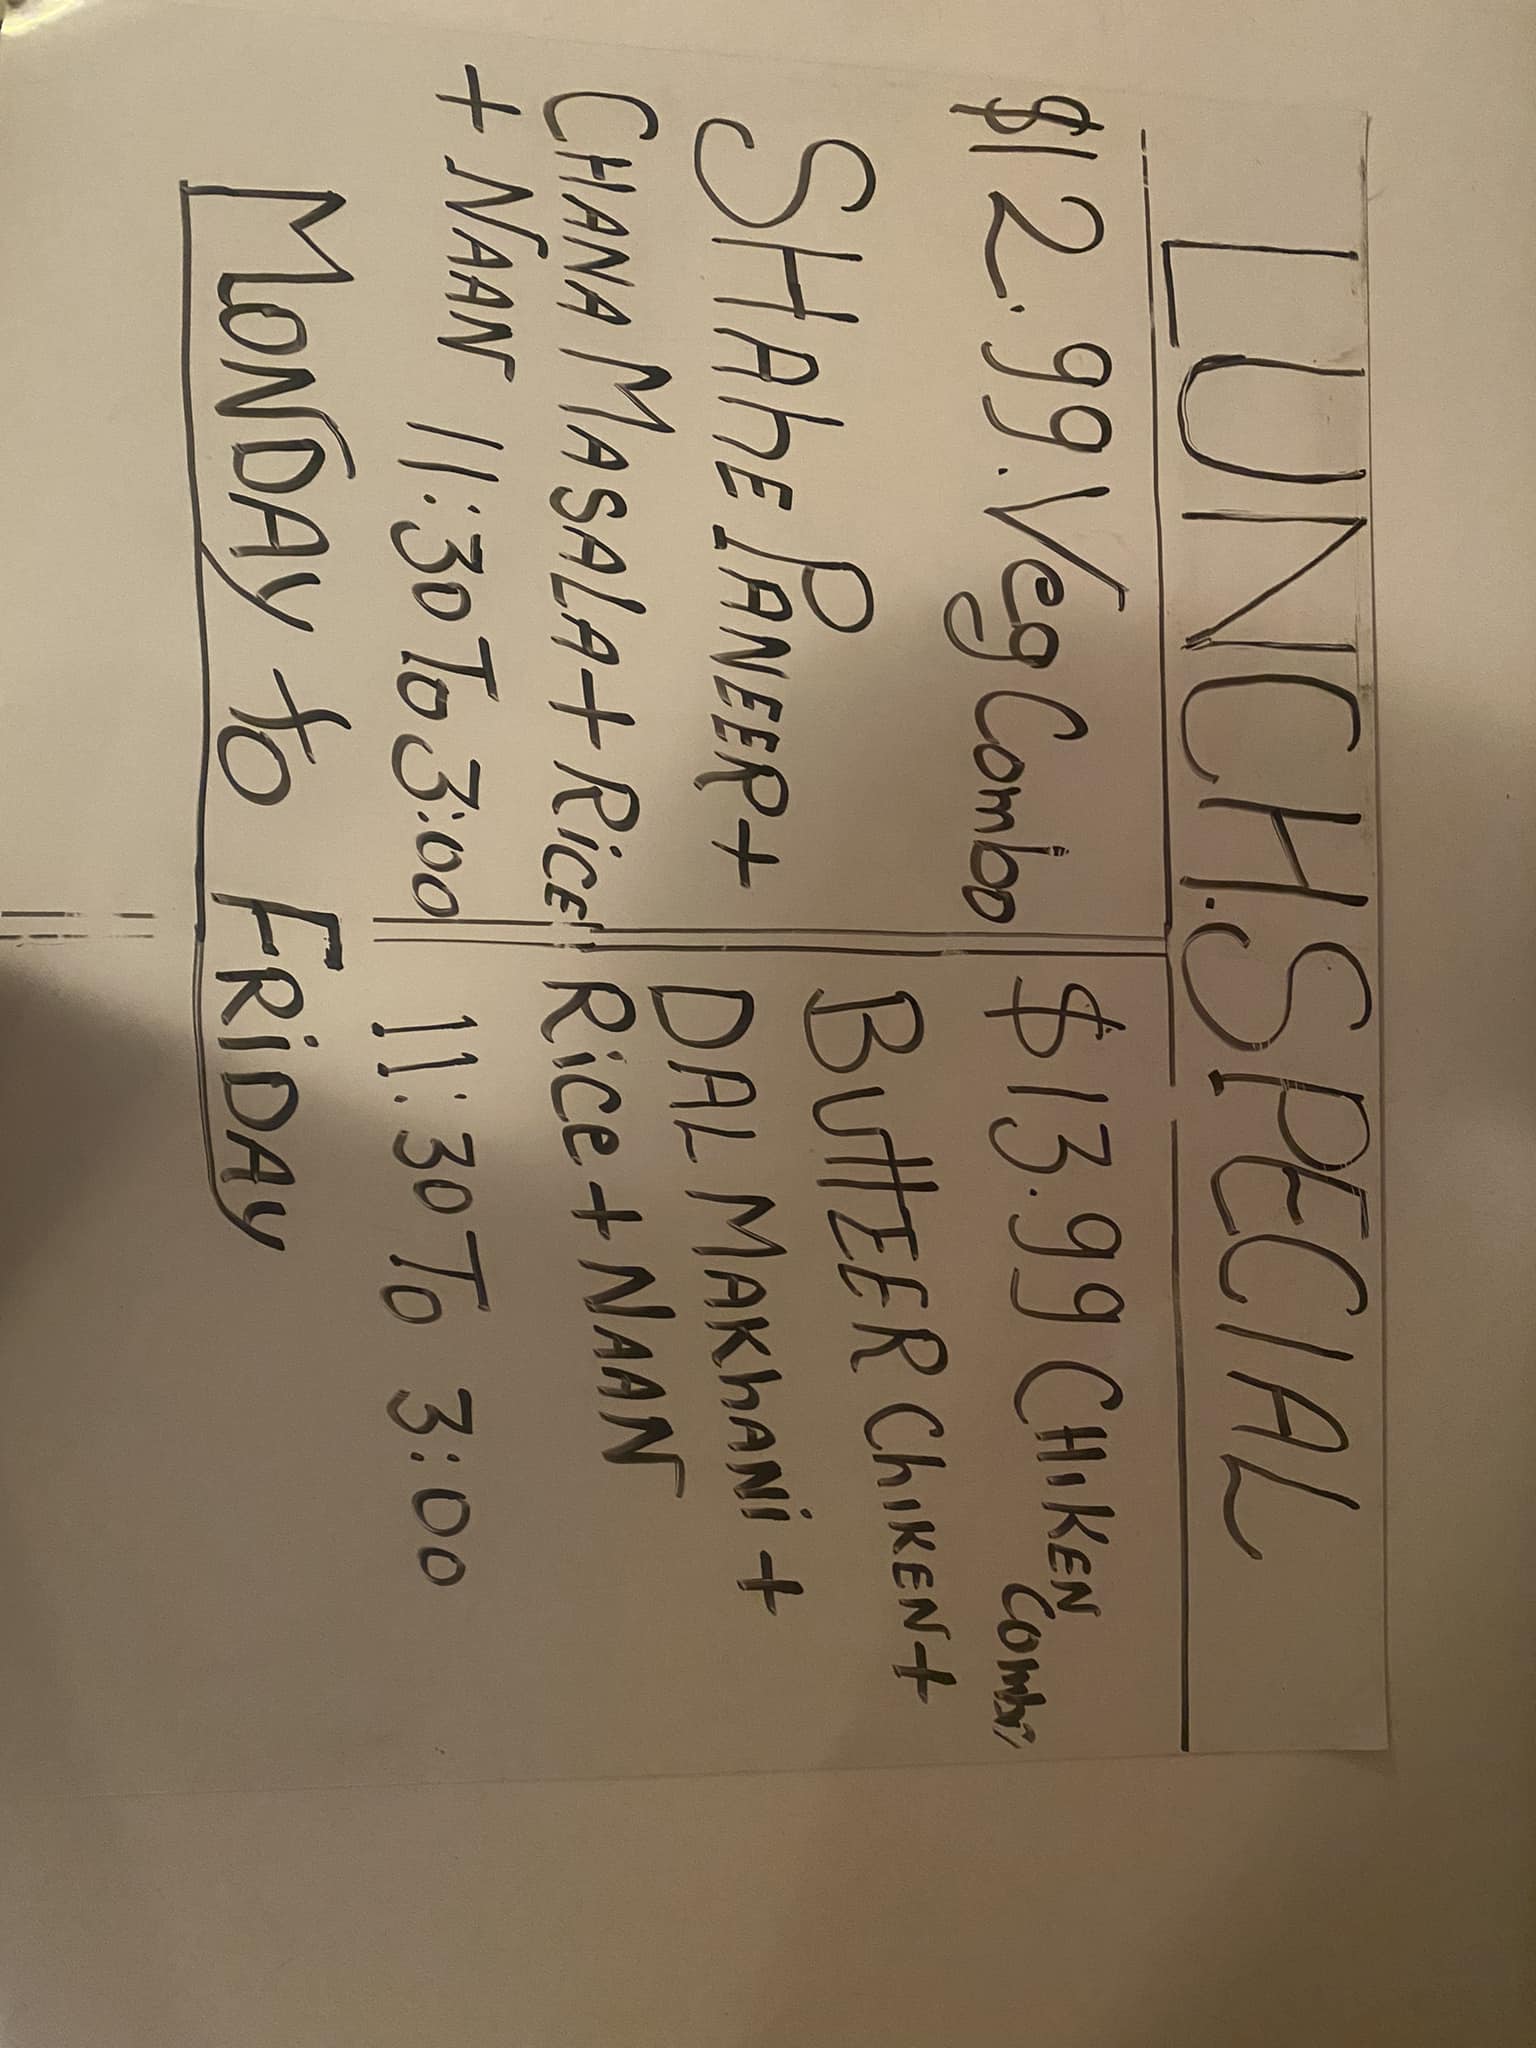 LUNCH.SPECIAL
$12.99.Veg Combo
SHAhE PANEER+
CHANA MASALA+RiCE
+ NAAN 11:30 To 3:00
$13.99 CHIKEN Combo
BUttER ChIKEN+
DAL MAKhANi +
RiCe+NAAN
11:30 To 3:00
MONDAY to FRiDAY